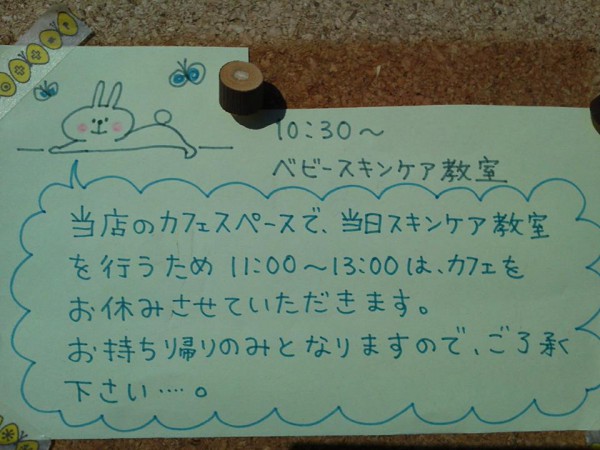 10:30〜
ベビースキンケア教室
当店のカフェスペースで、当日スキンケア教室
を行うため 11:00〜13:00は、カフェを
お休みさせていただきます。
お持ち帰りのみとなりますので、ご了承
下さい…。